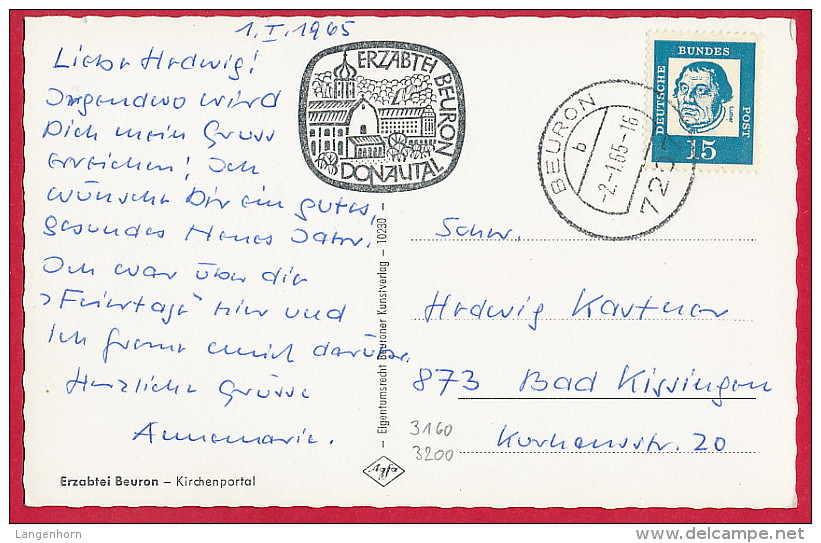 1.I.1965
Liebe Hedwig!
Irgendwo wird
Dich mein Gruss
erreichen! Ich
wünsche Dir ein gutes,
gesundes Neues Jahr.
Ich war über die
"Feiertage" hier und
ich freue mich darüber.
Herzliche Grüsse
Annemarie.
Erzabtei Beuron – Kirchenportal
ERZABTEI BEURON
DONAUTAL
– Eigentumsrecht Beuroner Kunstverlag – 10230 –
Agfa
BEURON
b
-2.-1.65-16
DEUTSCHE
BUNDES
POST
Luther
15
Schw.
Hedwig Kastner
873 Bad Kissingen
Kurhausstr. 20
3160
3200
Langenhorn
delcampe.net